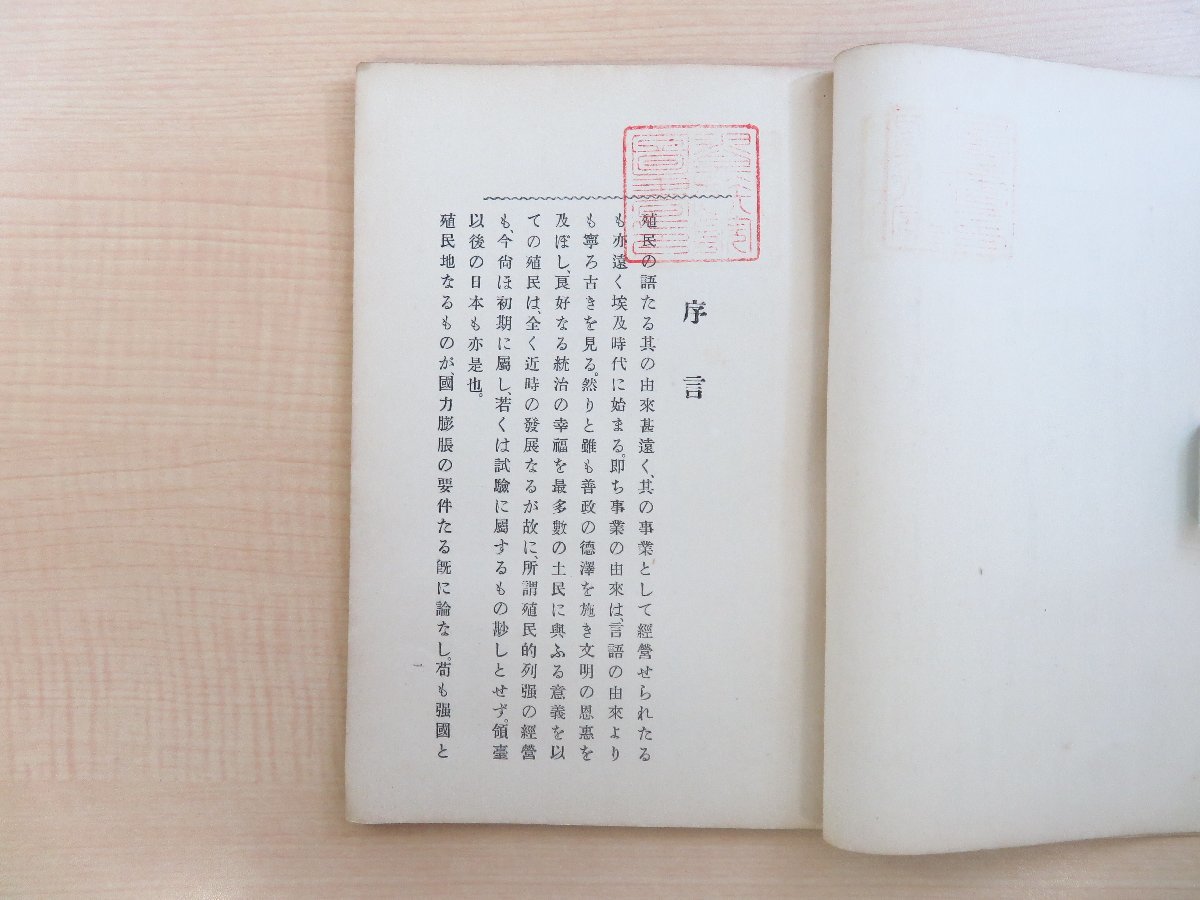 序言
殖民の語たる其の由來甚遠く、其の事業として經營せられたる
も亦遠く埃及時代に始まる。卽ち事業の由來は、言語の由來より
も寧ろ古きを見る。然りと雖も善政の德澤を施き文明の恩惠を
及ぼし、良好なる統治の幸福を最多數の土民に與ふる意義を以
ての殖民は、全く近時の發展なるが故に、所謂殖民的列强の經營
も、今尙ほ初期に屬し、若くは試驗に屬するもの尠しとせず。領臺
以後の日本も亦是也。
殖民地なるものが、國力膨脹の要件たる旣に論なし。苟も强國と
一